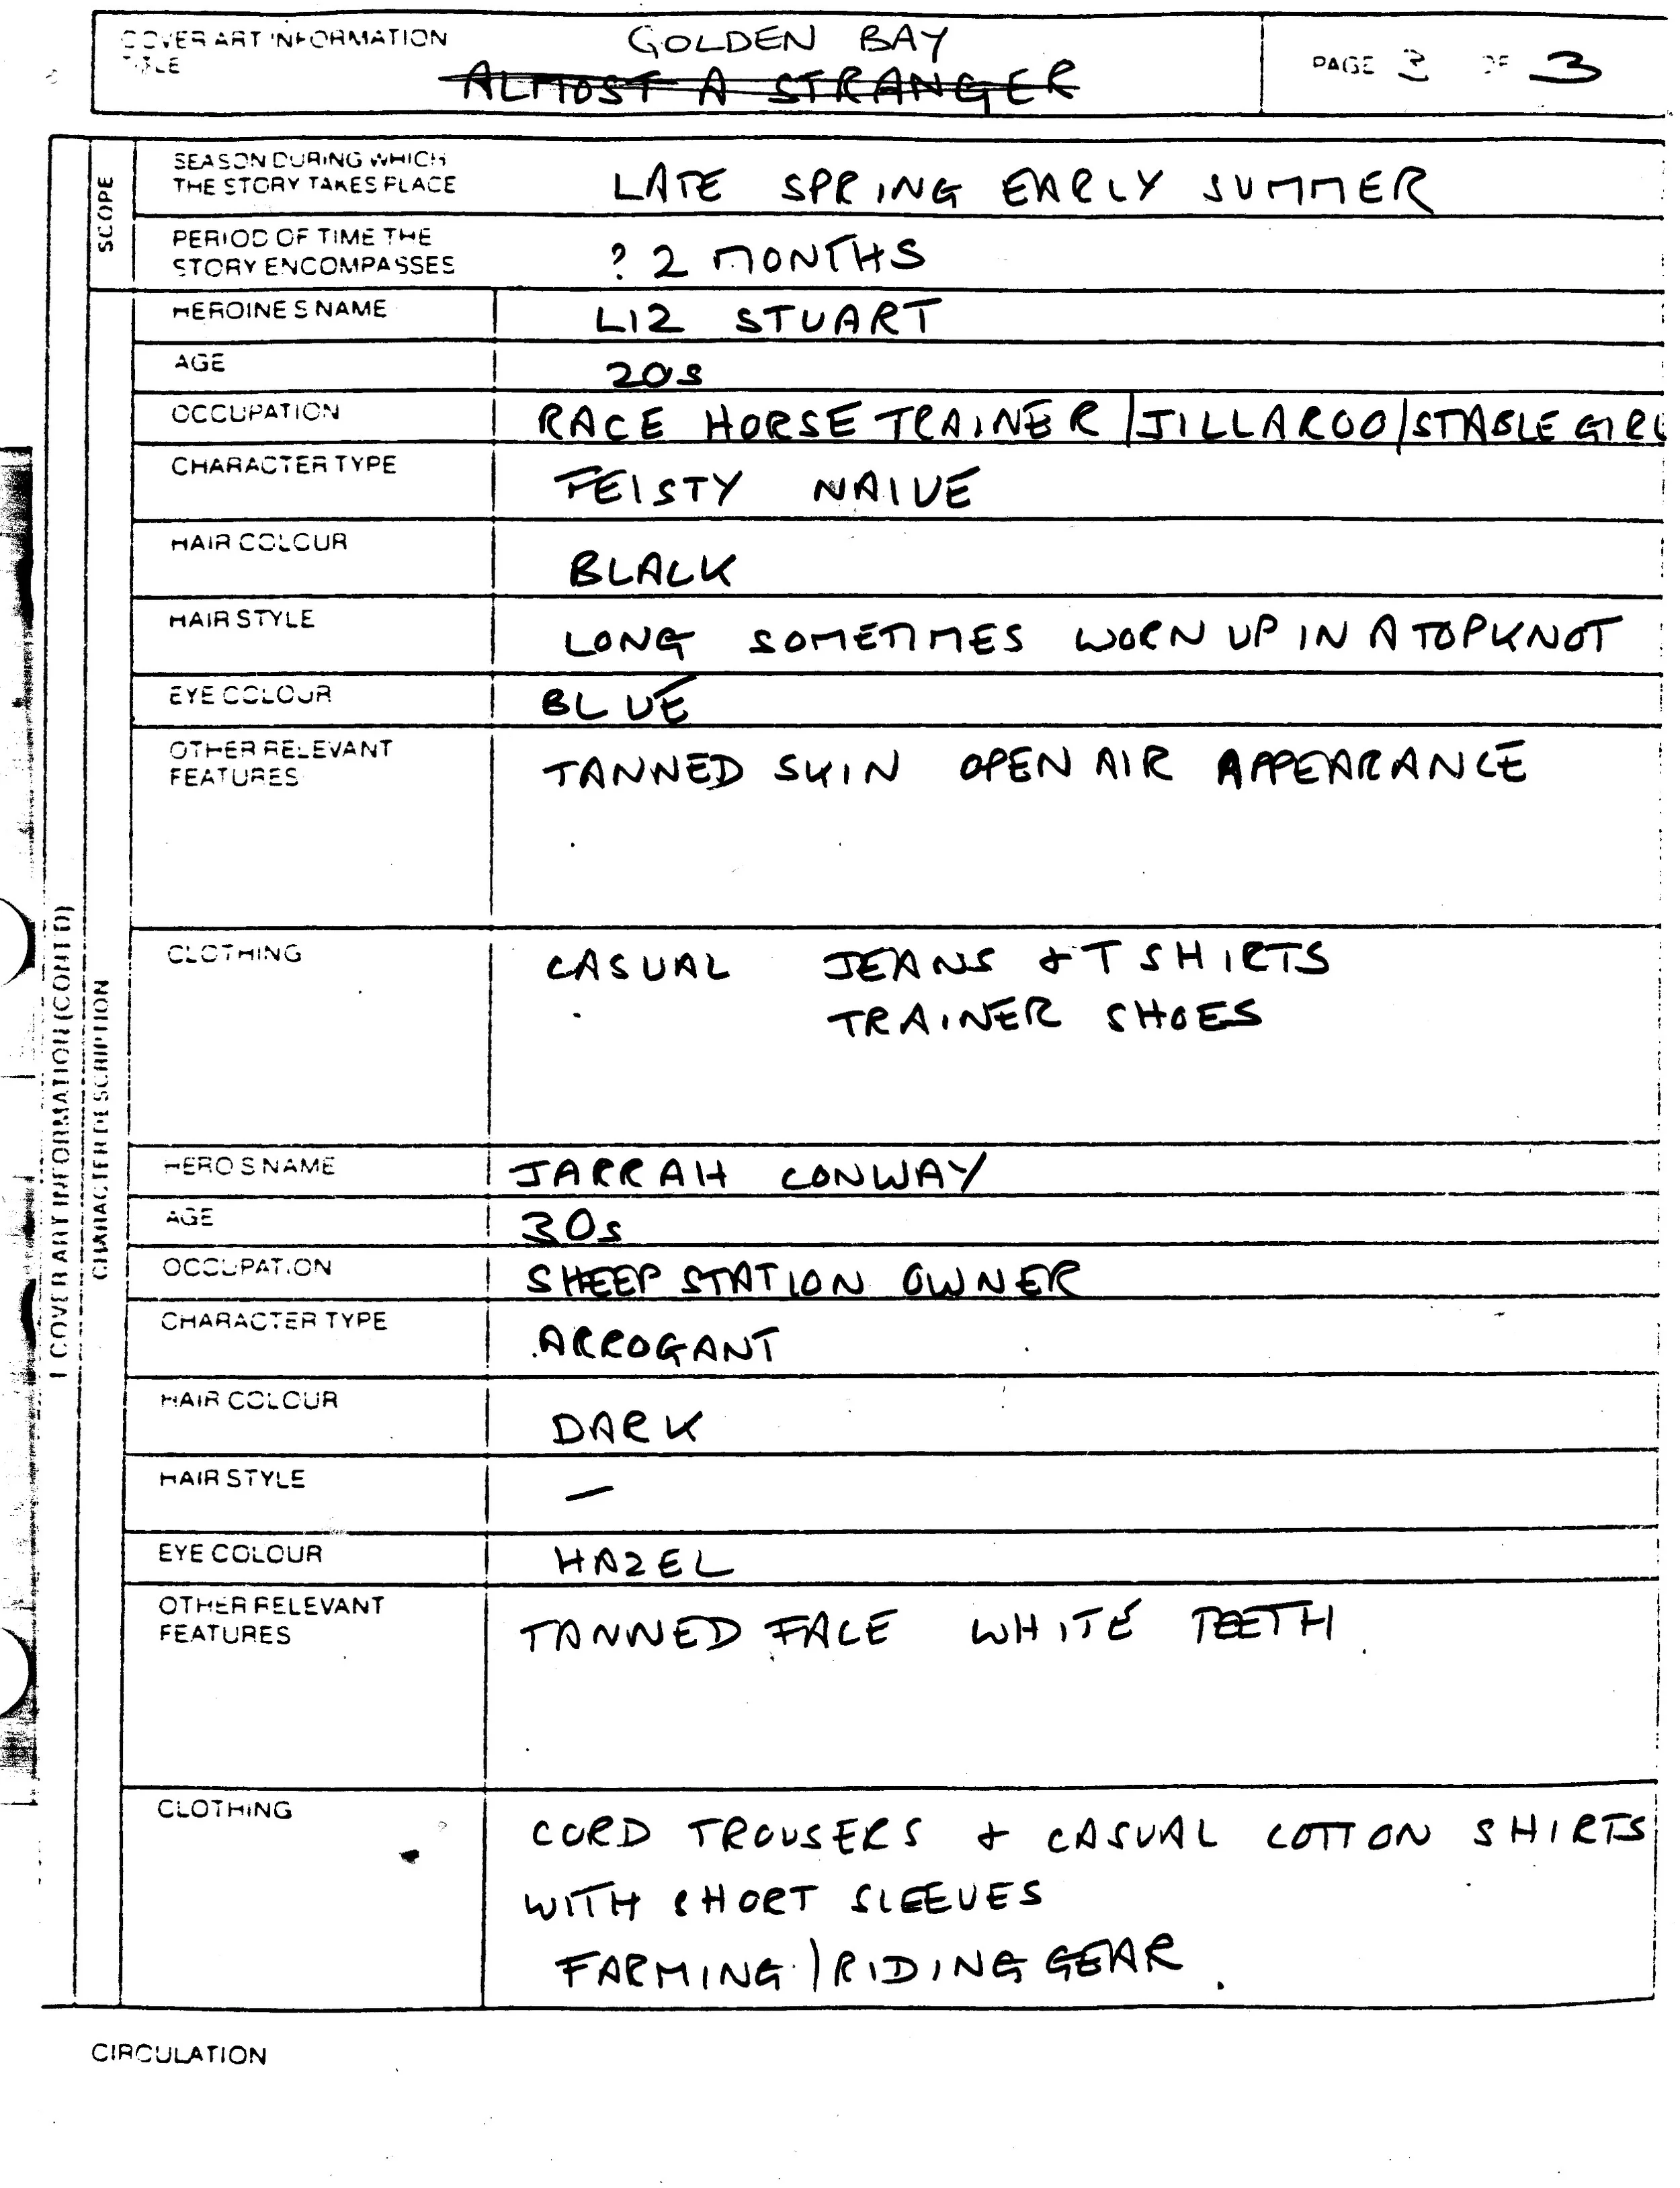 COVER ART INFORMATION
TITLE
GOLDEN BAY
ALMOST A STRANGER
PAGE 3 OF 3
I COVER ART INFORMATION (CONT D)
SCOPE
SEASON DURING WHICH
THE STORY TAKES PLACE
LATE SPRING EARLY SUMMER
PERIOD OF TIME THE
STORY ENCOMPASSES
? 2 MONTHS
CHARACTER DESCRIPTION
HEROINE S NAME
LIZ STUART
AGE
20s
OCCUPATION
RACE HORSE TRAINER/JILLAROO/STABLE GIRL
CHARACTER TYPE
FEISTY NAIVE
HAIR COLOUR
BLACK
HAIR STYLE
LONG SOMETIMES WORN UP IN A TOPKNOT
EYE COLOUR
BLUE
OTHER RELEVANT
FEATURES
TANNED SKIN OPEN AIR APPEARANCE
CLOTHING
CASUAL JEANS & T SHIRTS
TRAINER SHOES
HERO S NAME
JARRAH CONWAY
AGE
30s
OCCUPATION
SHEEP STATION OWNER
CHARACTER TYPE
ARROGANT
HAIR COLOUR
DARK
HAIR STYLE
—
EYE COLOUR
HAZEL
OTHER RELEVANT
FEATURES
TANNED FACE WHITE TEETH
CLOTHING
CORD TROUSERS & CASUAL COTTON SHIRTS
WITH SHORT SLEEVES
FARMING/RIDING GEAR.
CIRCULATION